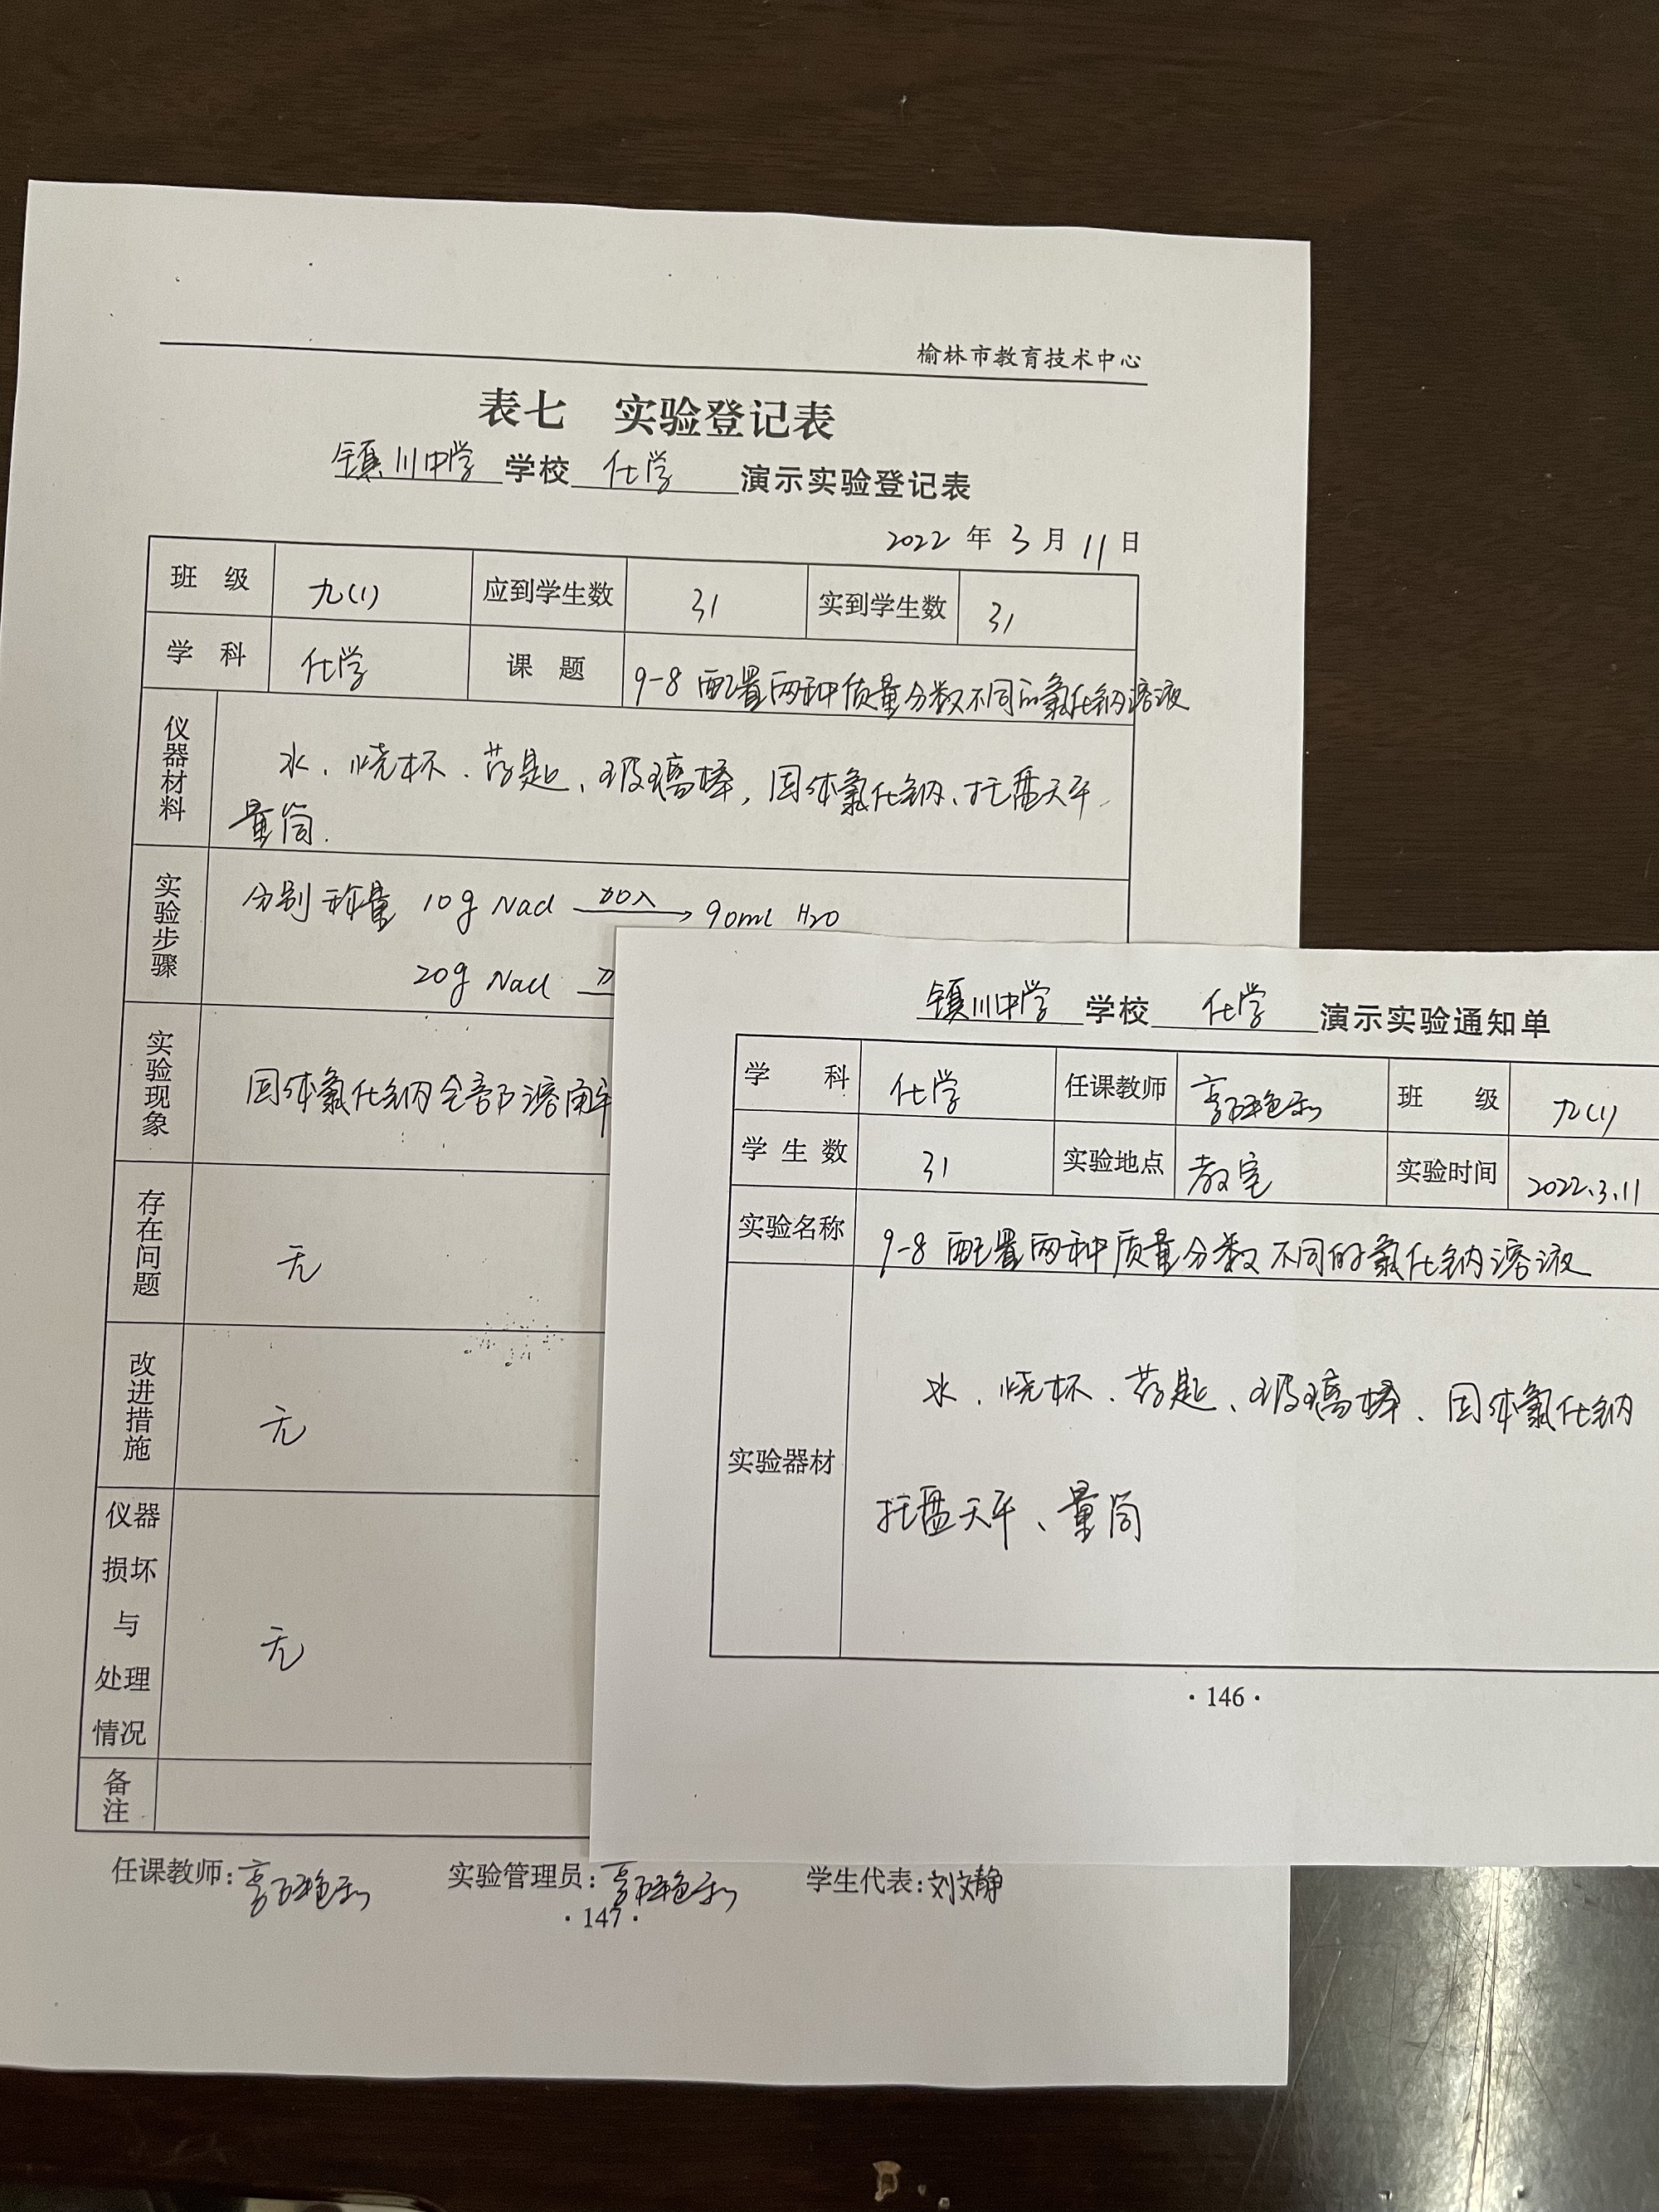 榆林市教育技术中心
表七 实验登记表
镇川中学 学校 化学 演示实验登记表
2022 年 3 月 11 日
班 级 九(1) 应到学生数 31 实到学生数 31
学 科 化学 课 题 9-8 配置两种质量分数不同的氯化钠溶液
仪器材料 水、烧杯、药匙、玻璃棒,固体氯化钠、托盘天平、
量筒.
实验步骤 分别称量 10g Nacl 加入 → 90ml H2O
20g Nacl
实验现象 固体氯化钠全部溶解
存在问题 无
改进措施 无
仪器
损坏
与
处理
情况
无
备注
任课教师: 实验管理员: 学生代表:刘文静
·147·
镇川中学 学校 化学 演示实验通知单
学 科 化学 任课教师 班 级 九(1)
学 生 数 31 实验地点 教室 实验时间 2022.3.11
实验名称 9-8 配置两种质量分数不同的氯化钠溶液
实验器材 水、烧杯、药匙、玻璃棒、固体氯化钠
托盘天平、量筒
·146·